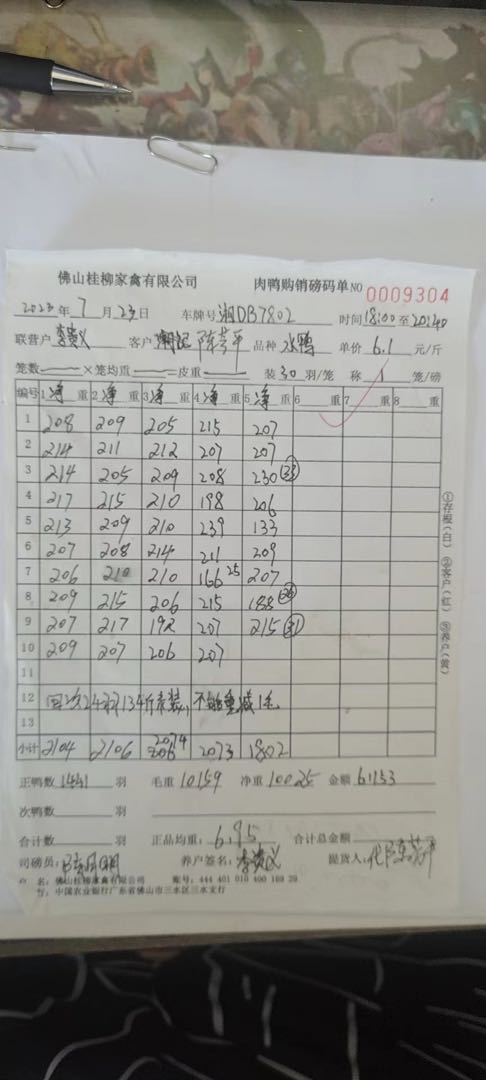 佛山桂柳家禽有限公司 肉鸭购销磅码单 NO 0009304
2023年 7 月 23日 车牌号 湘DB7802 时间 18:00 至 20:40
联营户 客户 品种 水鸭 单价 6.1 元/斤
笼数 × 笼均重 = 皮重 装 30 羽/笼 称 1 笼/磅
编号 1 净 重 2 净 重 3 净 重 4 净 重 5 净 重 6 重 7 重 8 重
1 208 209 205 215 207
2 214 211 212 207 207
3 214 205 209 208 230
4 217 215 210 198 206
5 213 209 210 239 133
6 207 208 214 211 209
7 206 210 210 166 25 207
8 209 215 206 215 188
9 207 217 192 207 215 (31)
10 209 207 206 207
11
12 24羽134斤
13
小计 2104 2106 2074 2073 1802
正鸭数 1441 羽 毛重 10159 净重 10025 金额 61153
次鸭数 羽
合计数 羽 正品均重: 6.95 合计总金额
司磅员: 养户签名: 提货人:
户 名: 佛山桂柳家禽有限公司 账号: 444 401 010 400 169 29
行: 中国农业银行广东省佛山市三水区三水支行
①存根(白) ②客户(红) ③养户(黄)